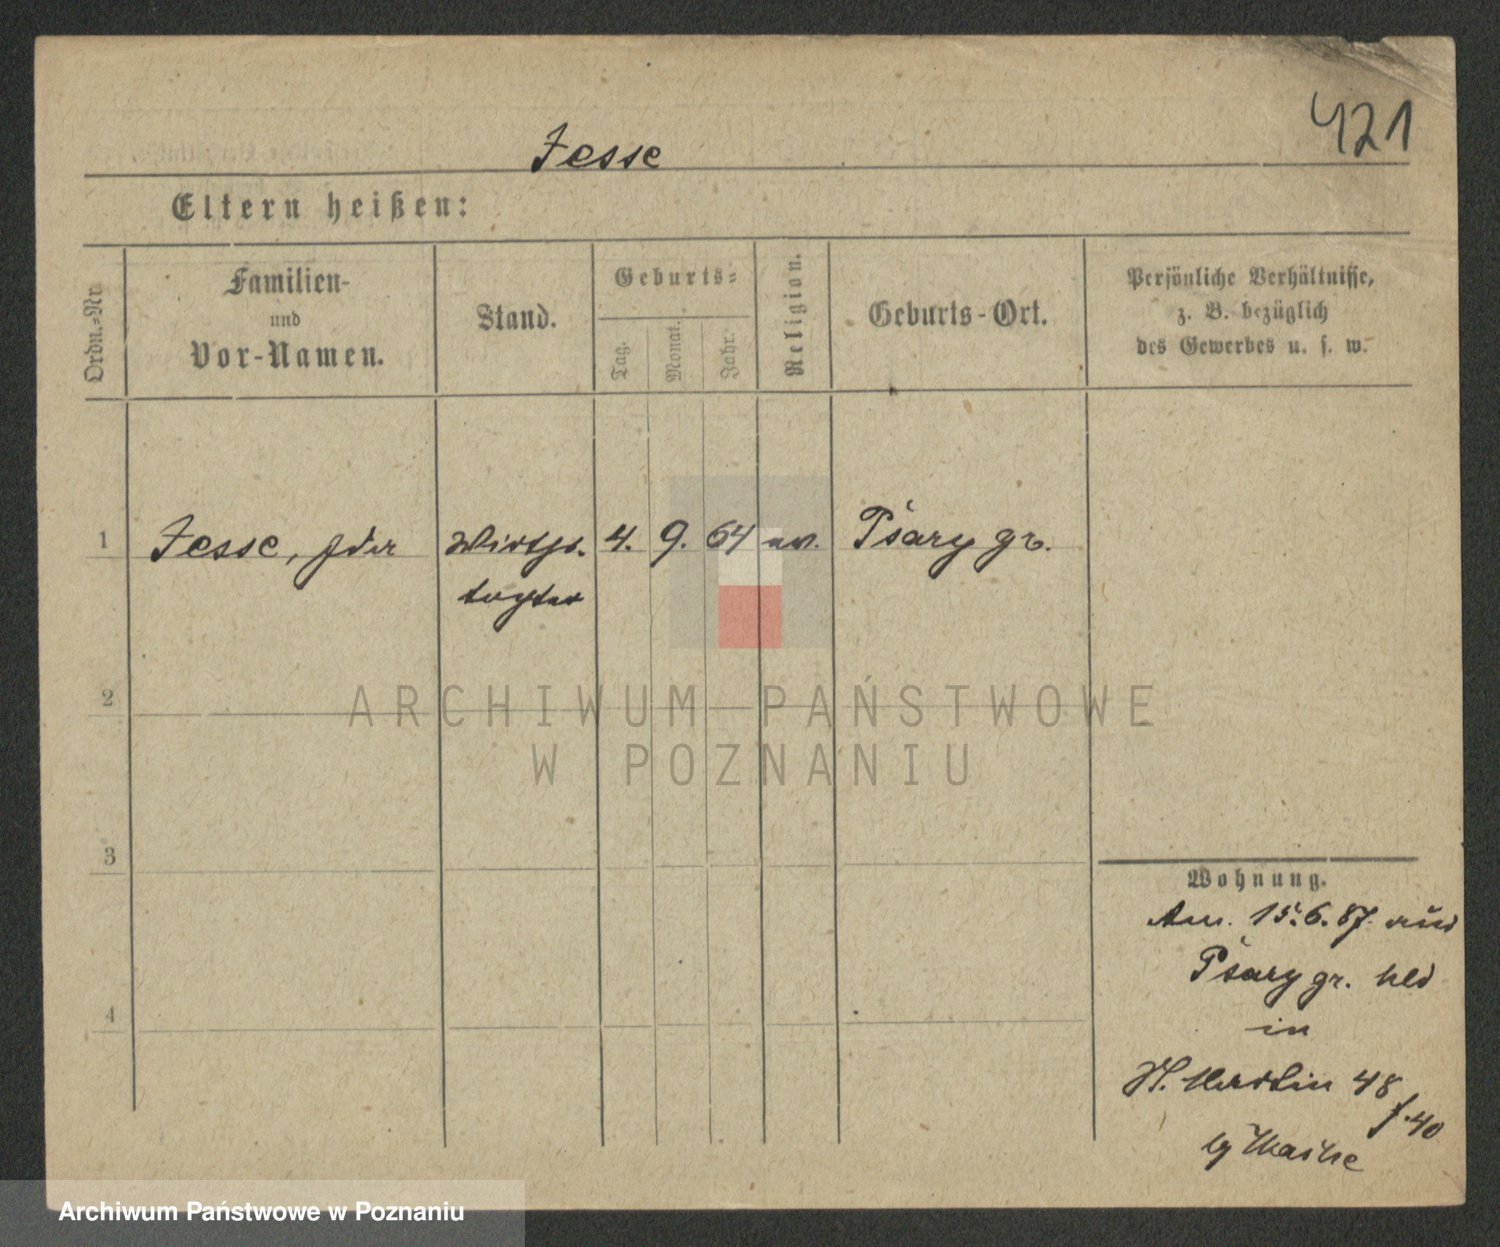 421
Jesse
Eltern heißen:
Ordn.-Nr.
Familien-
und
Vor-Namen.
Stand.
Geburts-
Tag.
Monat.
Jahr.
Religion.
Geburts-Ort.
Persönliche Verhältnisse,
z. B. bezüglich
des Gewerbes u. s. w.
1 Jesse, Ida Wirths. 4. 9. 64 ev. Psary gr.
tochter
2
ARCHIWUM PAŃSTWOWE
W POZNANIU
3
Wohnung.
15.6.87. aus
Psary gr.
4
in
St. Martin 48
f. 40
Archiwum Państwowe w Poznaniu